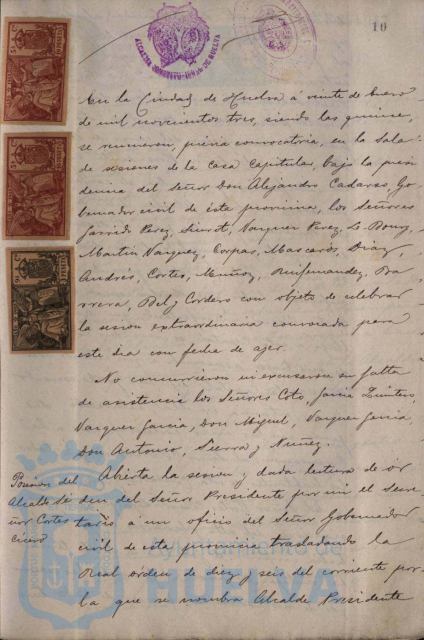 10
En la Ciudad de Huelva á veinte de Enero
de mil novecientos tres, siendo las quince,
se reunieron, previa convocatoria, en la Sala
de sesiones de la Casa Capitular, bajo la presi
dencia del Señor Don Alejandro Cadarso, Go
bernador civil de esta provincia, los Señores
Garrido Perez, Vazquez Perez, Le Bourg,
Martin Vazquez, Corpas, Mascarós, Diaz,
Andrés, Cortes, Muñoz, Ruifernandez, Ba
rrera, Bel y Cordero con objeto de celebrar
la sesion extraordinaria convocada para
este dia con fecha de ayer.
No concurrieron ni excusaron su falta
de asistencia los Señores Coto, Garcia
Vazquez Garcia, Don Miguel, Vazquez Garcia,
Don Antonio, Sierra y Nuñez.
Abierta la sesion y dada lectura de or
den del Señor Presidente por mi el Secre
tario á un oficio del Señor Gobernador
civil de esta provincia trasladando la
Real orden de diez y seis del corriente por
la que se nombra Alcalde Presidente
Posesion del
Alcalde Se
ñor Cortes
Ayuntamiento de
HUELVA